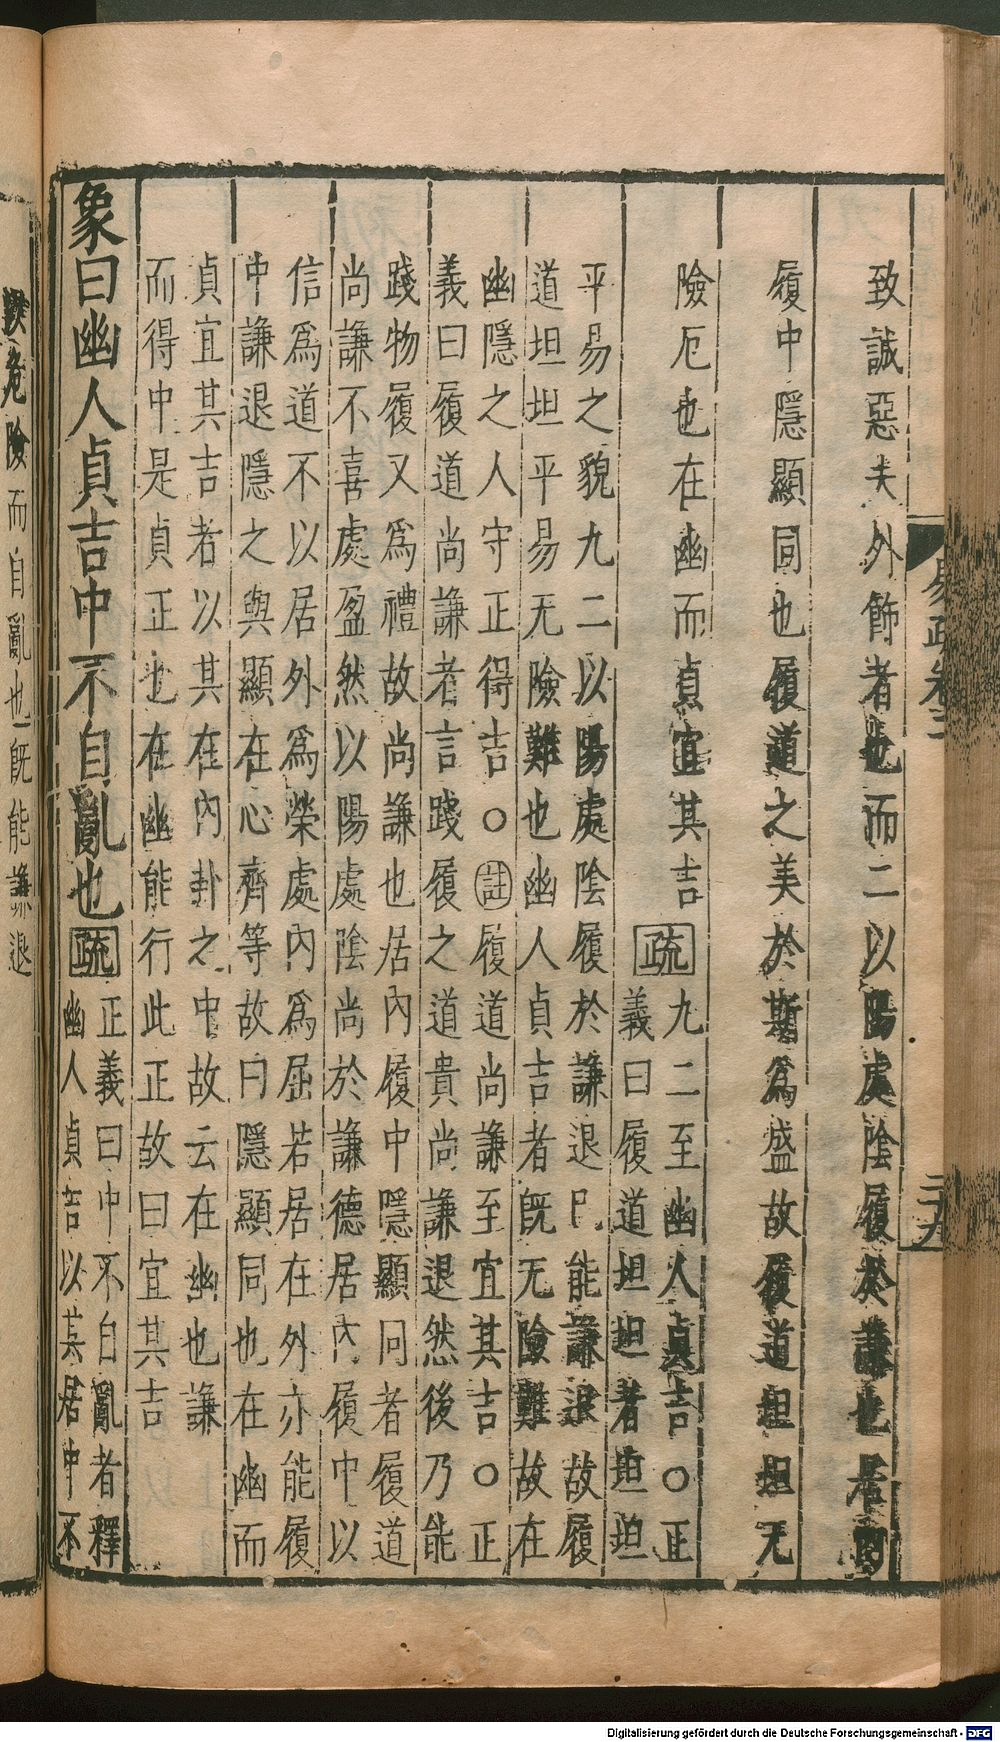 致誠惡夫外飾者也而二以陽處陰履於謙也居內
履中隱顯同也履道之美於斯爲盛故履道坦坦无
險厄也在幽而貞宜其吉疏
九二至幽人貞吉○正
義曰履道坦坦者坦坦
平易之貌九二以陽處陰履於謙退已能謙退故履
道坦坦平易无險難也幽人貞吉者旣无險難故在
幽隱之人守正得吉○註履道尚謙至宜其吉○正
義曰履道尚謙者言踐履之道貴尚謙退然後乃能
踐物履又爲禮故尚謙也居內履中隱顯同者履道
尚謙不喜處盈然以陽處陰尚於謙德居內履中以
信爲道不以居外爲榮處內爲屈若居在外亦能履
中謙退隱之與顯在心齊等故曰隱顯同也在幽而
貞宜其吉者以其在內卦之中故云在幽也謙
而得中是貞正也在幽能行此正故曰宜其吉
象曰幽人貞吉中不自亂也疏
正義曰中不自亂者釋
幽人貞吉以其居中不
危險而自亂也旣能謙退
Digitalisierung gefördert durch die Deutsche Forschungsgemeinschaft - DFG